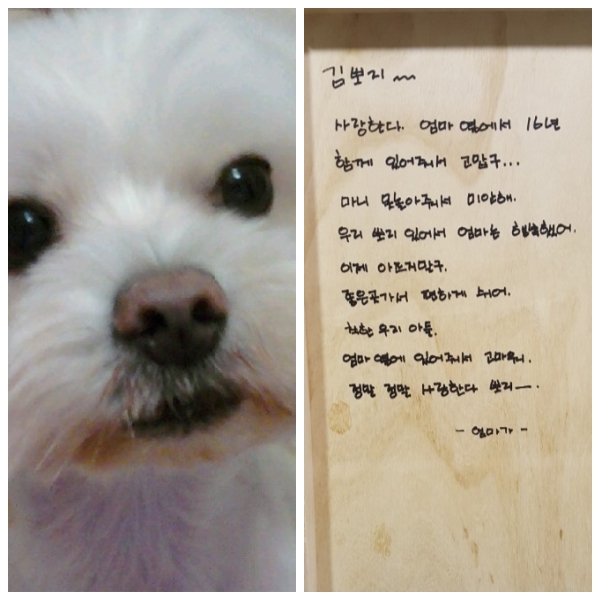 김뽀리~
사랑한다. 엄마 옆에서 16년
함께 있어주서 고맙구...
마니 못놀아주서 미안해.
우리 뽀리 있어서 엄마는 행복했어.
이제 아프지말구.
좋은곳가서 편하게 쉬어.
착한 우리 아들.
엄마 옆에 있어주서 고마워.
정말 정말 사랑한다 뽀리ㅡ.
- 엄마가 -